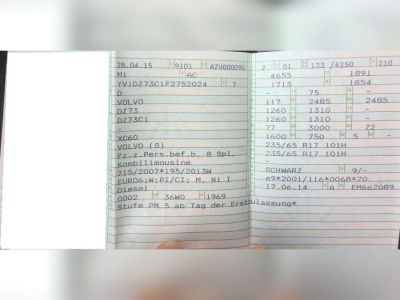 28.04.15 9101 AZU000090
M1 AC
YV1DZ73C1F2752024 7
D
VOLVO
DZ73
DZ73C1
-
XC60
VOLVO (S)
Fz.z.Pers.bef.b. 8 Spl.
Kombilimousine
715/2007*195/2013W
EURO6;W;PI/CI; M, N1 I
Diesel
0002 36W0 1969
Stufe PM 5 ab Tag der Erstzulassung*
2 01 133 /4250 210
4655 1891
1713 1854
- 75 - -
117 2485 2485
1260 1310 -
1260 1310 -
77 3000 72
1600 750 5 -
235/65 R17 101H
235/65 R17 101H
-
SCHWARZ 9/-
e9*2001/116*0068*20
17.06.14 A EM662089